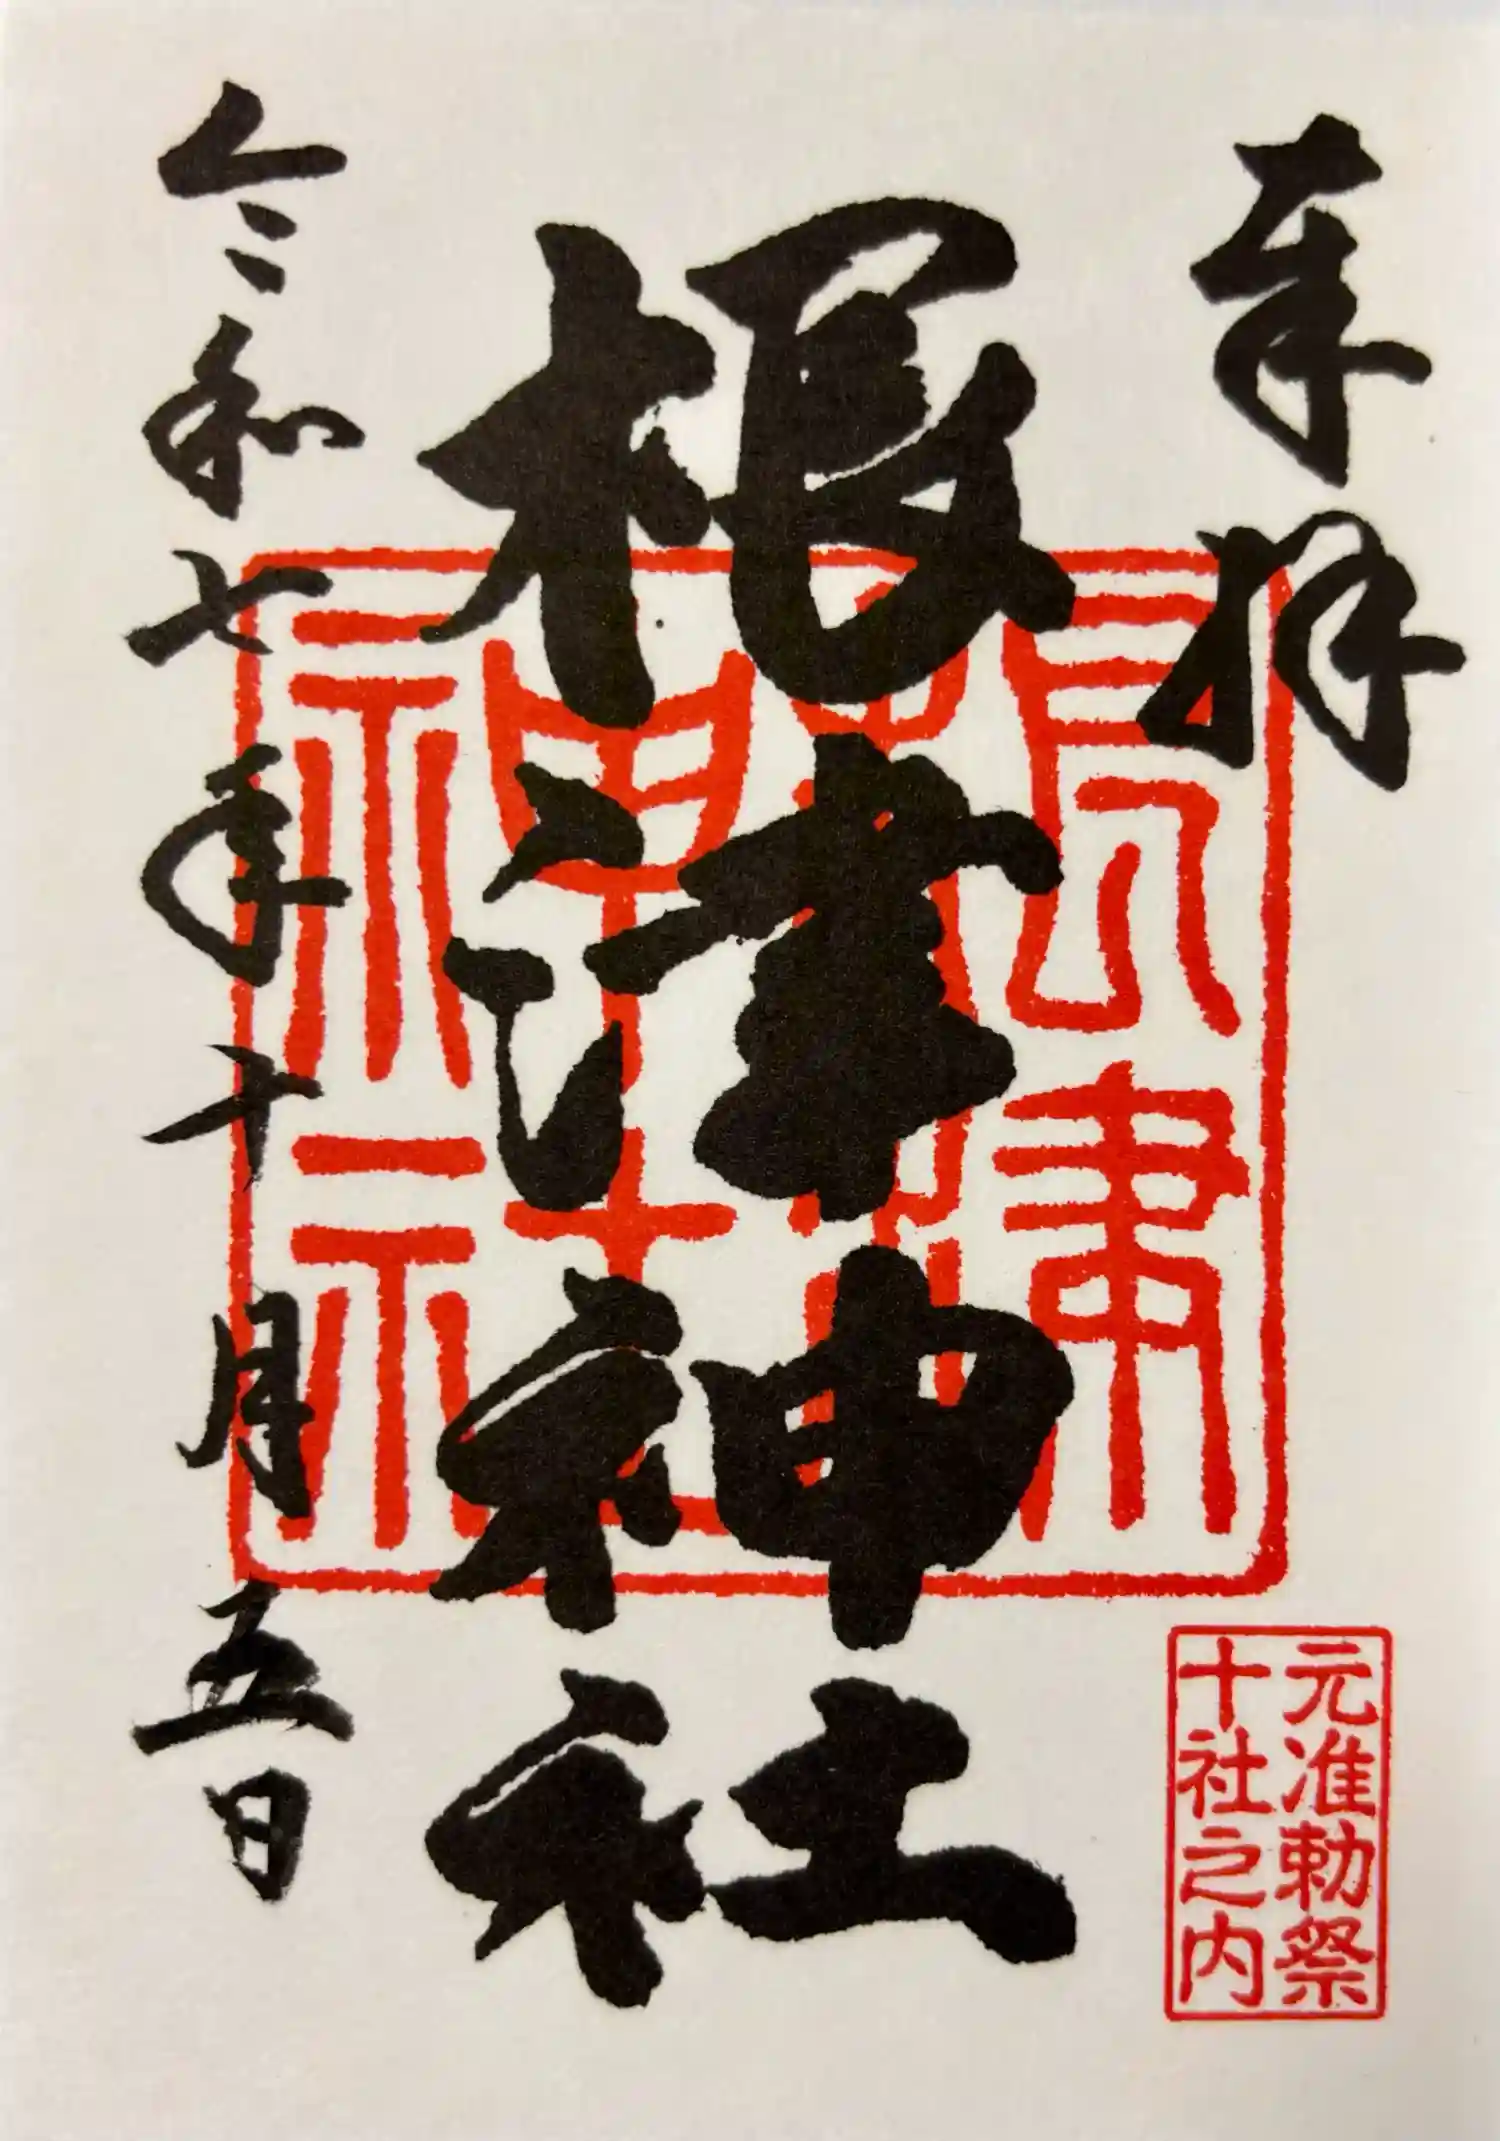 奉拝
元准勅祭
十社之内
根津神社
根津
神社
令和七年十月五日